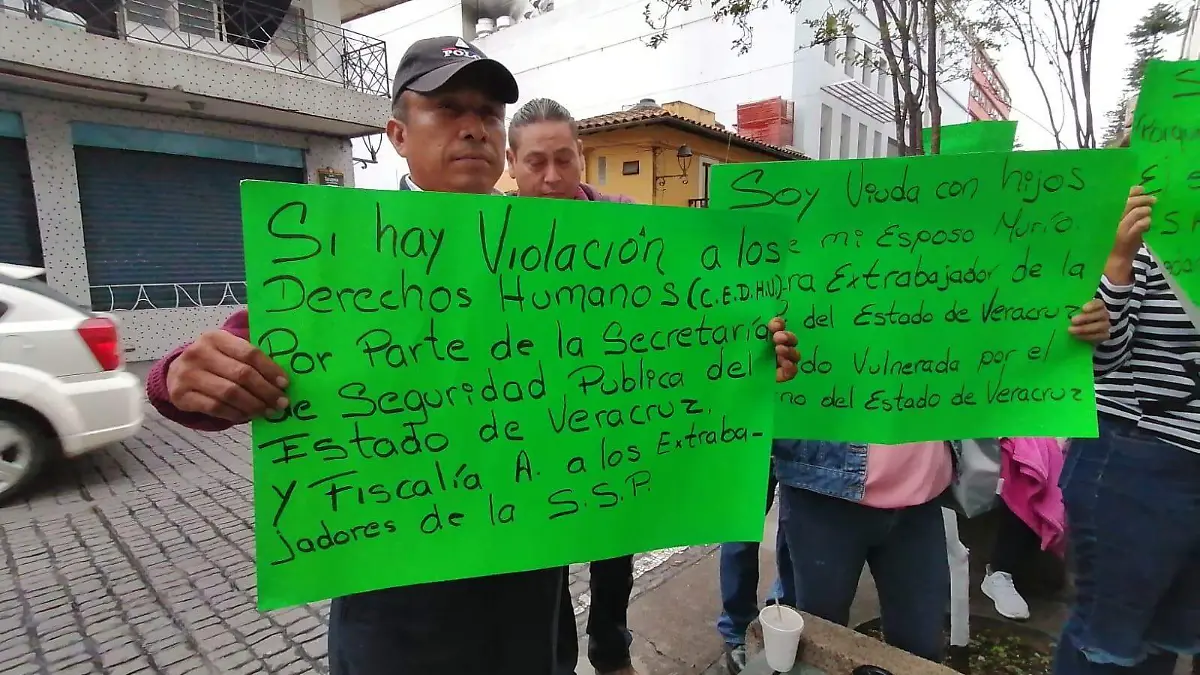 POL
Si hay Violación a los
Derechos Humanos (C.E.D.H.U.)
Por Parte de la Secretaría
de Seguridad Publica del
Estado de Veracruz,
y Fiscalía A. a los Extraba-
jadores de la S.S.P.
Soy Viuda con hijos
e mi Esposo Murio.
ra Extrabajador de la
del Estado de Veracruz
do Vulnerada por el
no del Estado de Veracruz